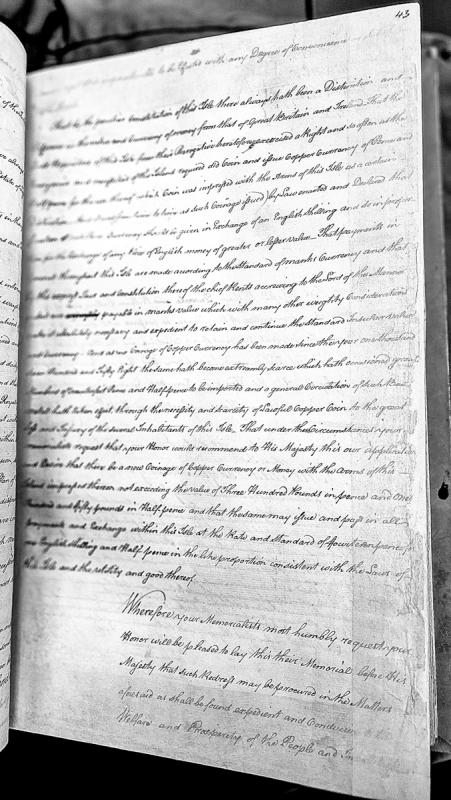 43
to be Effected with any Degree of Convenience
That by the peculiar Constitution of this Isle there always hath been a Distinction and
Difference in the value and Currency of money from that of Great Britain and Ireland That the
Lords Proprietors of this Isle from their Prerogative heretofore exercised a Right and so often as the
Exigencies and necessities of the Island required did Coin and issue Copper Currency of Pence and
Half pence for the use thereof which Coin was impressed with the Arms of this Isle as a certain
from time to time as such Coinage issued by Law enacted and Declared that
is given in Exchange of an English shilling and so in propor-
tion for the Exchange of any Piece of English money of greater or lesser value — That payments in
general throughout this Isle are made according to the Standard of manks Currency and that
by the Laws and Constitution thereof the chief Rents accruing to the Lord of the Manor
are payable in manks value which with many other weighty Considerations
absolutely necessary and expedient to retain and continue the Standard
and Currency. And as no Coinage of Copper Currency has been made since the year one thousand
seven Hundred and Fifty Eight the same hath become extreamly scarce which hath occasioned great
Numbers of Counterfeit Pence and Half pence to be imported and a general Circulation of such Base
hath taken effect through the necessity and scarcity of Lawful Copper Coin to the great
Loss and Injury of the several Inhabitants of this Isle. That under the Circumstances your
Memorialists request that your Honor would recommend to His Majesty this our application
and Desire that there be a new Coinage of Copper Currency or Money with the Arms of this
Island impressed thereon not exceeding the value of Three Hundred Pounds in pence and One
Hundred and fifty pounds in Half pence and that the same may issue and pass in all
payments and Exchange within this Isle at the Rate and Standard of fourteen pence for
one English shilling and Half pence in the like proportion consistent with the Laws of
this Isle and the utility and good thereof.
Wherefore your Memorialists most humbly request your
Honor will be pleased to lay this their Memorial before His
Majesty that such Redress may be procured in the Matters
aforesaid as shall be found expedient and Conducive to the
Welfare and Prosperity of the People and